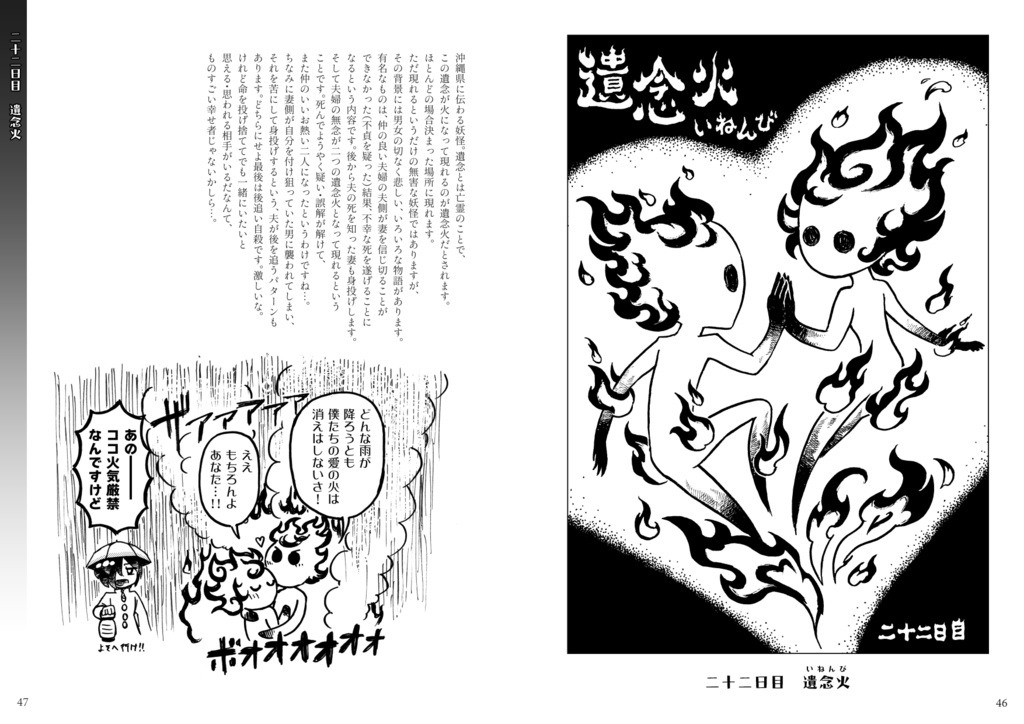 遺念火
いねんび
二十二日目
いねんび
二十二日目 遺念火
46
二十二日目 遺念火
沖縄県に伝わる妖怪。遺念とは亡霊のことで、
この遺念が火になって現れるのが遺念火だとされます。
ほとんどの場合決まった場所に現れます。
ただ現れるというだけの無害な妖怪ではありますが、
その背景には男女の切なく悲しい、いろいろな物語があります。
有名なものは、仲の良い夫婦の夫側が妻を信じ切ることが
できなかった(不貞を疑った)結果、不幸な死を遂げることに
なるという内容です。後から夫の死を知った妻も身投げします。
そして夫婦の無念が二つの遺念火となって現れるという
ことです。死んでようやく疑い・誤解が解けて、
また仲のいいお熱い二人になったというわけですね…。
ちなみに妻側が自分を付け狙っていた男に襲われてしまい、
それを苦にして身投げするという、夫が後を追うパターンも
あります。どちらにせよ最後は後追い自殺です。激しいな。
けれど命を投げ捨ててでも一緒にいたいと
思える・思われる相手がいるだなんて、
ものすごい幸せ者じゃないかしら…。
ザァァァァァ
どんな雨が
降ろうとも
僕たちの愛の火は
消えはしないさ!
ええ
もちろんよ
あなた…!!
あの――
ココ火気厳禁
なんですけど
よそへ行け!!
ボオオオオオオ
47